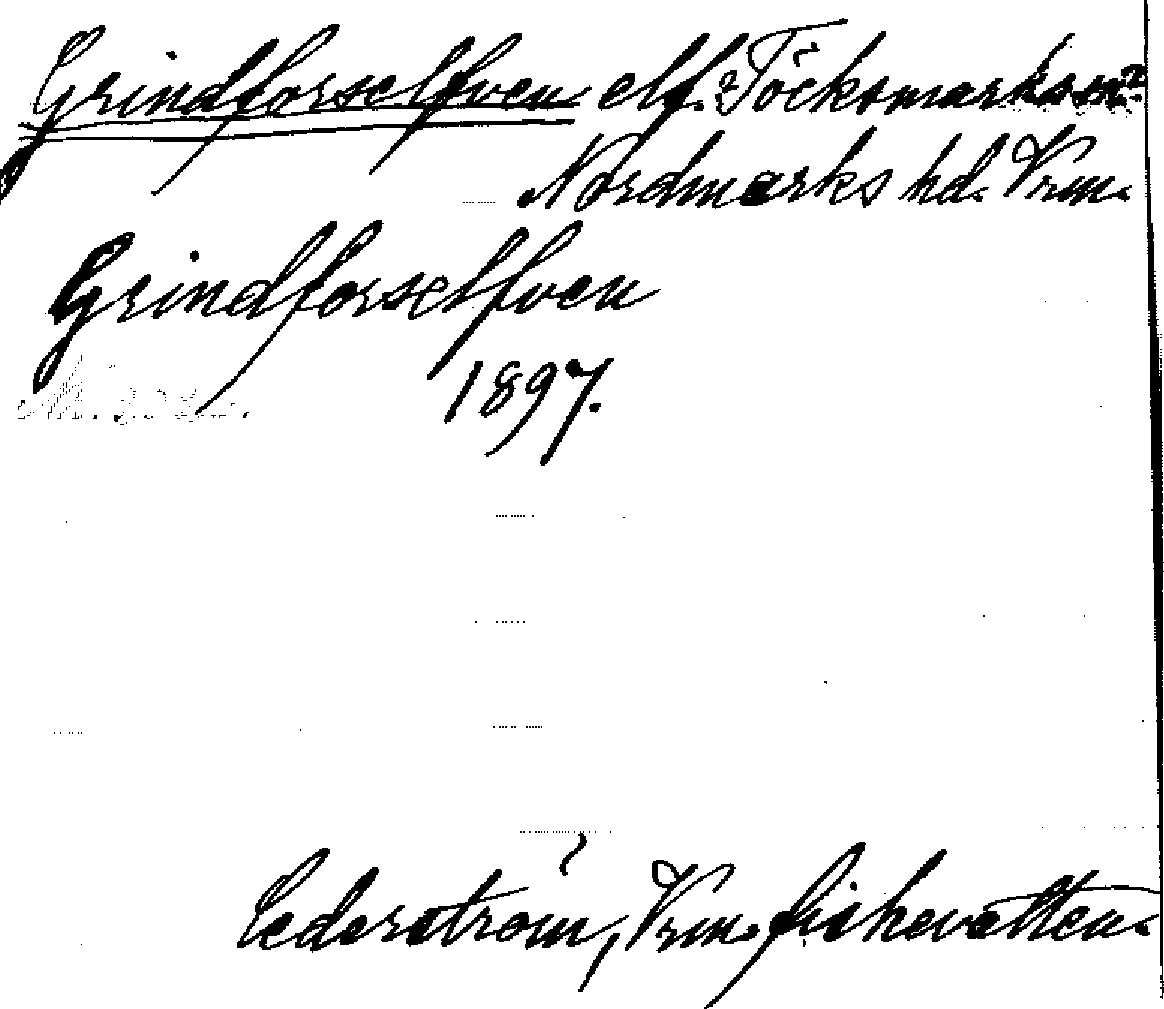 Grindforselfven elf. i Töcksmarks sn
Nordmarks hd. Vrm.
Grindforselfven
1897.
Cederström, Vrm. fiskevatten.